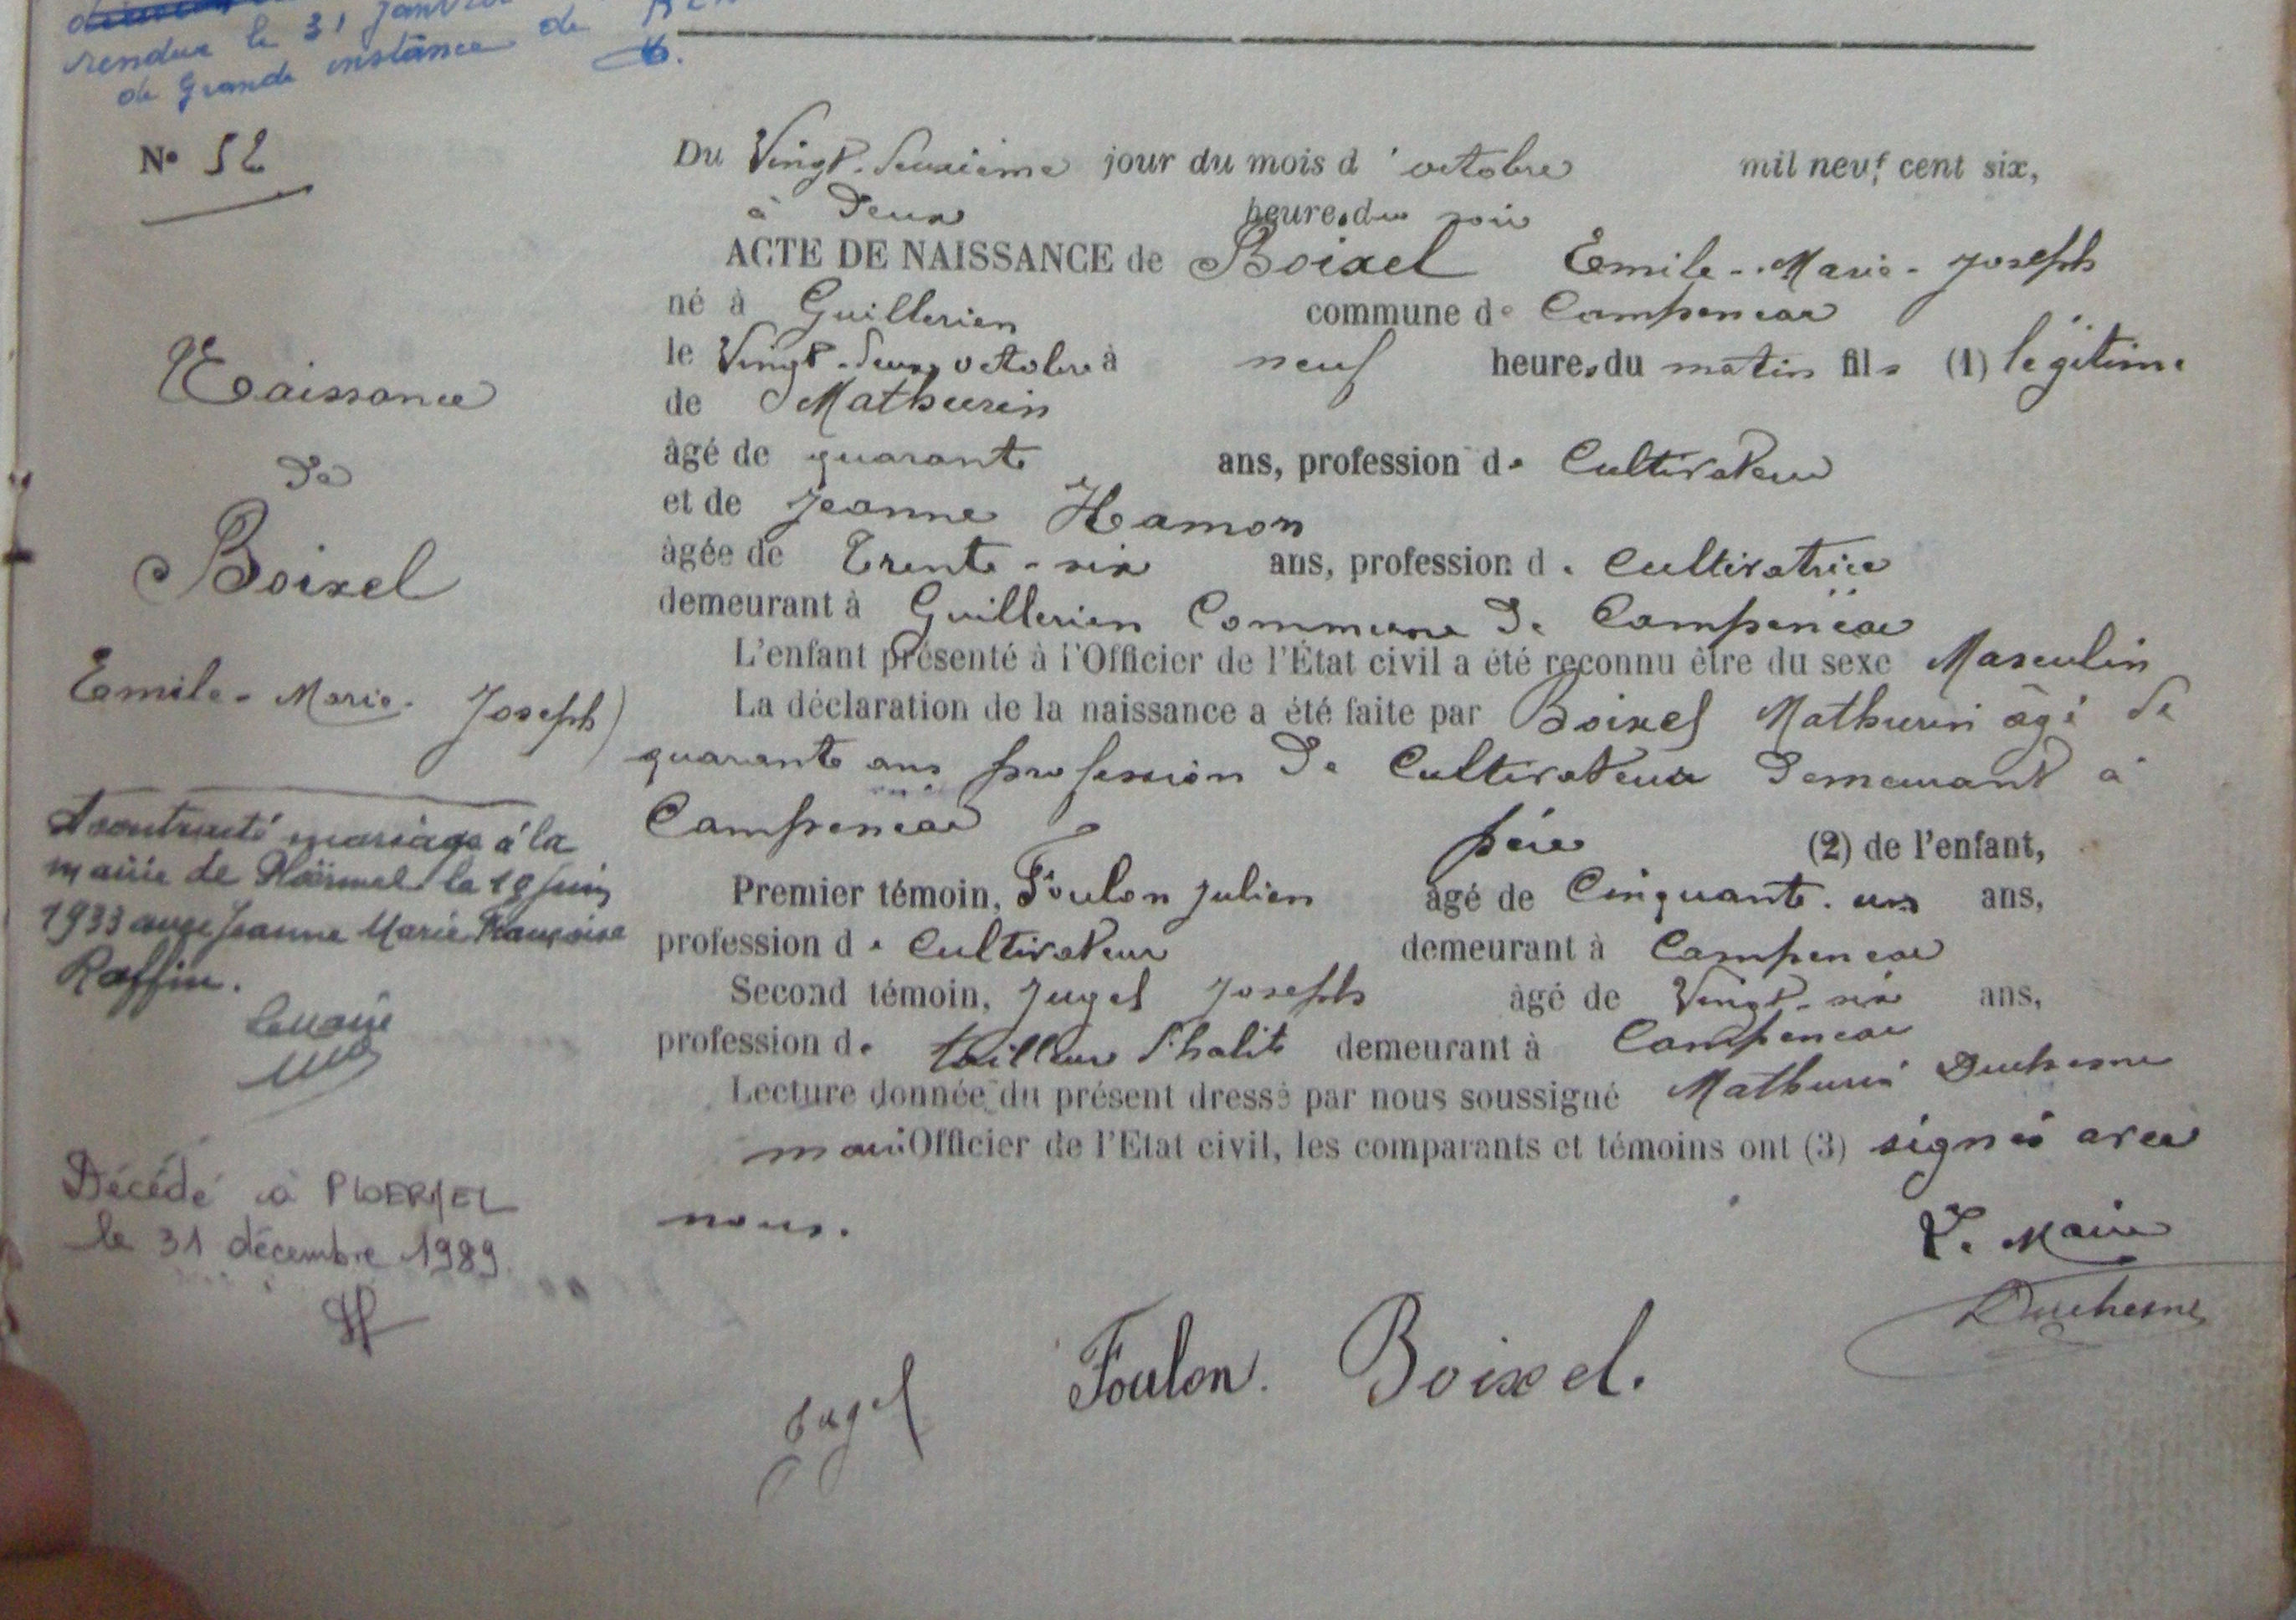 rendue le 31 janvier
de Grande instance de
N° 52
Du Vingt-deuxième jour du mois d'octobre mil neuf cent six,
à deux heures du soir
ACTE DE NAISSANCE de Boixel Emile-Marie-Joseph
né à Guillerien commune de Campénéac
le Vingt-deux octobre à neuf heures du matin fils (1) légitime
de Mathurin
âgé de quarante ans, profession de Cultivateur
et de Jeanne Hamon
âgée de Trente-six ans, profession de Cultivatrice
demeurant à Guillerien Commune de Campénéac
L'enfant présenté à l'Officier de l'État civil a été reconnu être du sexe Masculin
La déclaration de la naissance a été faite par Boixel Mathurin âgé de
quarante ans profession de Cultivateur demeurant à
Campénéac père (2) de l'enfant,
Premier témoin, Foulon Julien âgé de Cinquante-un ans,
profession de Cultivateur demeurant à Campénéac
Second témoin, Jugel Joseph âgé de Vingt-six ans,
profession de tailleur d'habits demeurant à Campénéac
Lecture donnée du présent dressé par nous soussigné Mathurin Duchesne
maire Officier de l'Etat civil, les comparants et témoins ont (3) signé avec
nous.
Le Maire
Duchesne
Jugel Foulon. Boixel.
Naissance
de
Boixel
Emile-Marie-Joseph
A contracté mariage à la
mairie de Ploërmel le 18 juin
1933 avec Jeanne Marie Françoise
Raffin.
Le maire
Décédé à PLOERMEL
le 31 décembre 1989